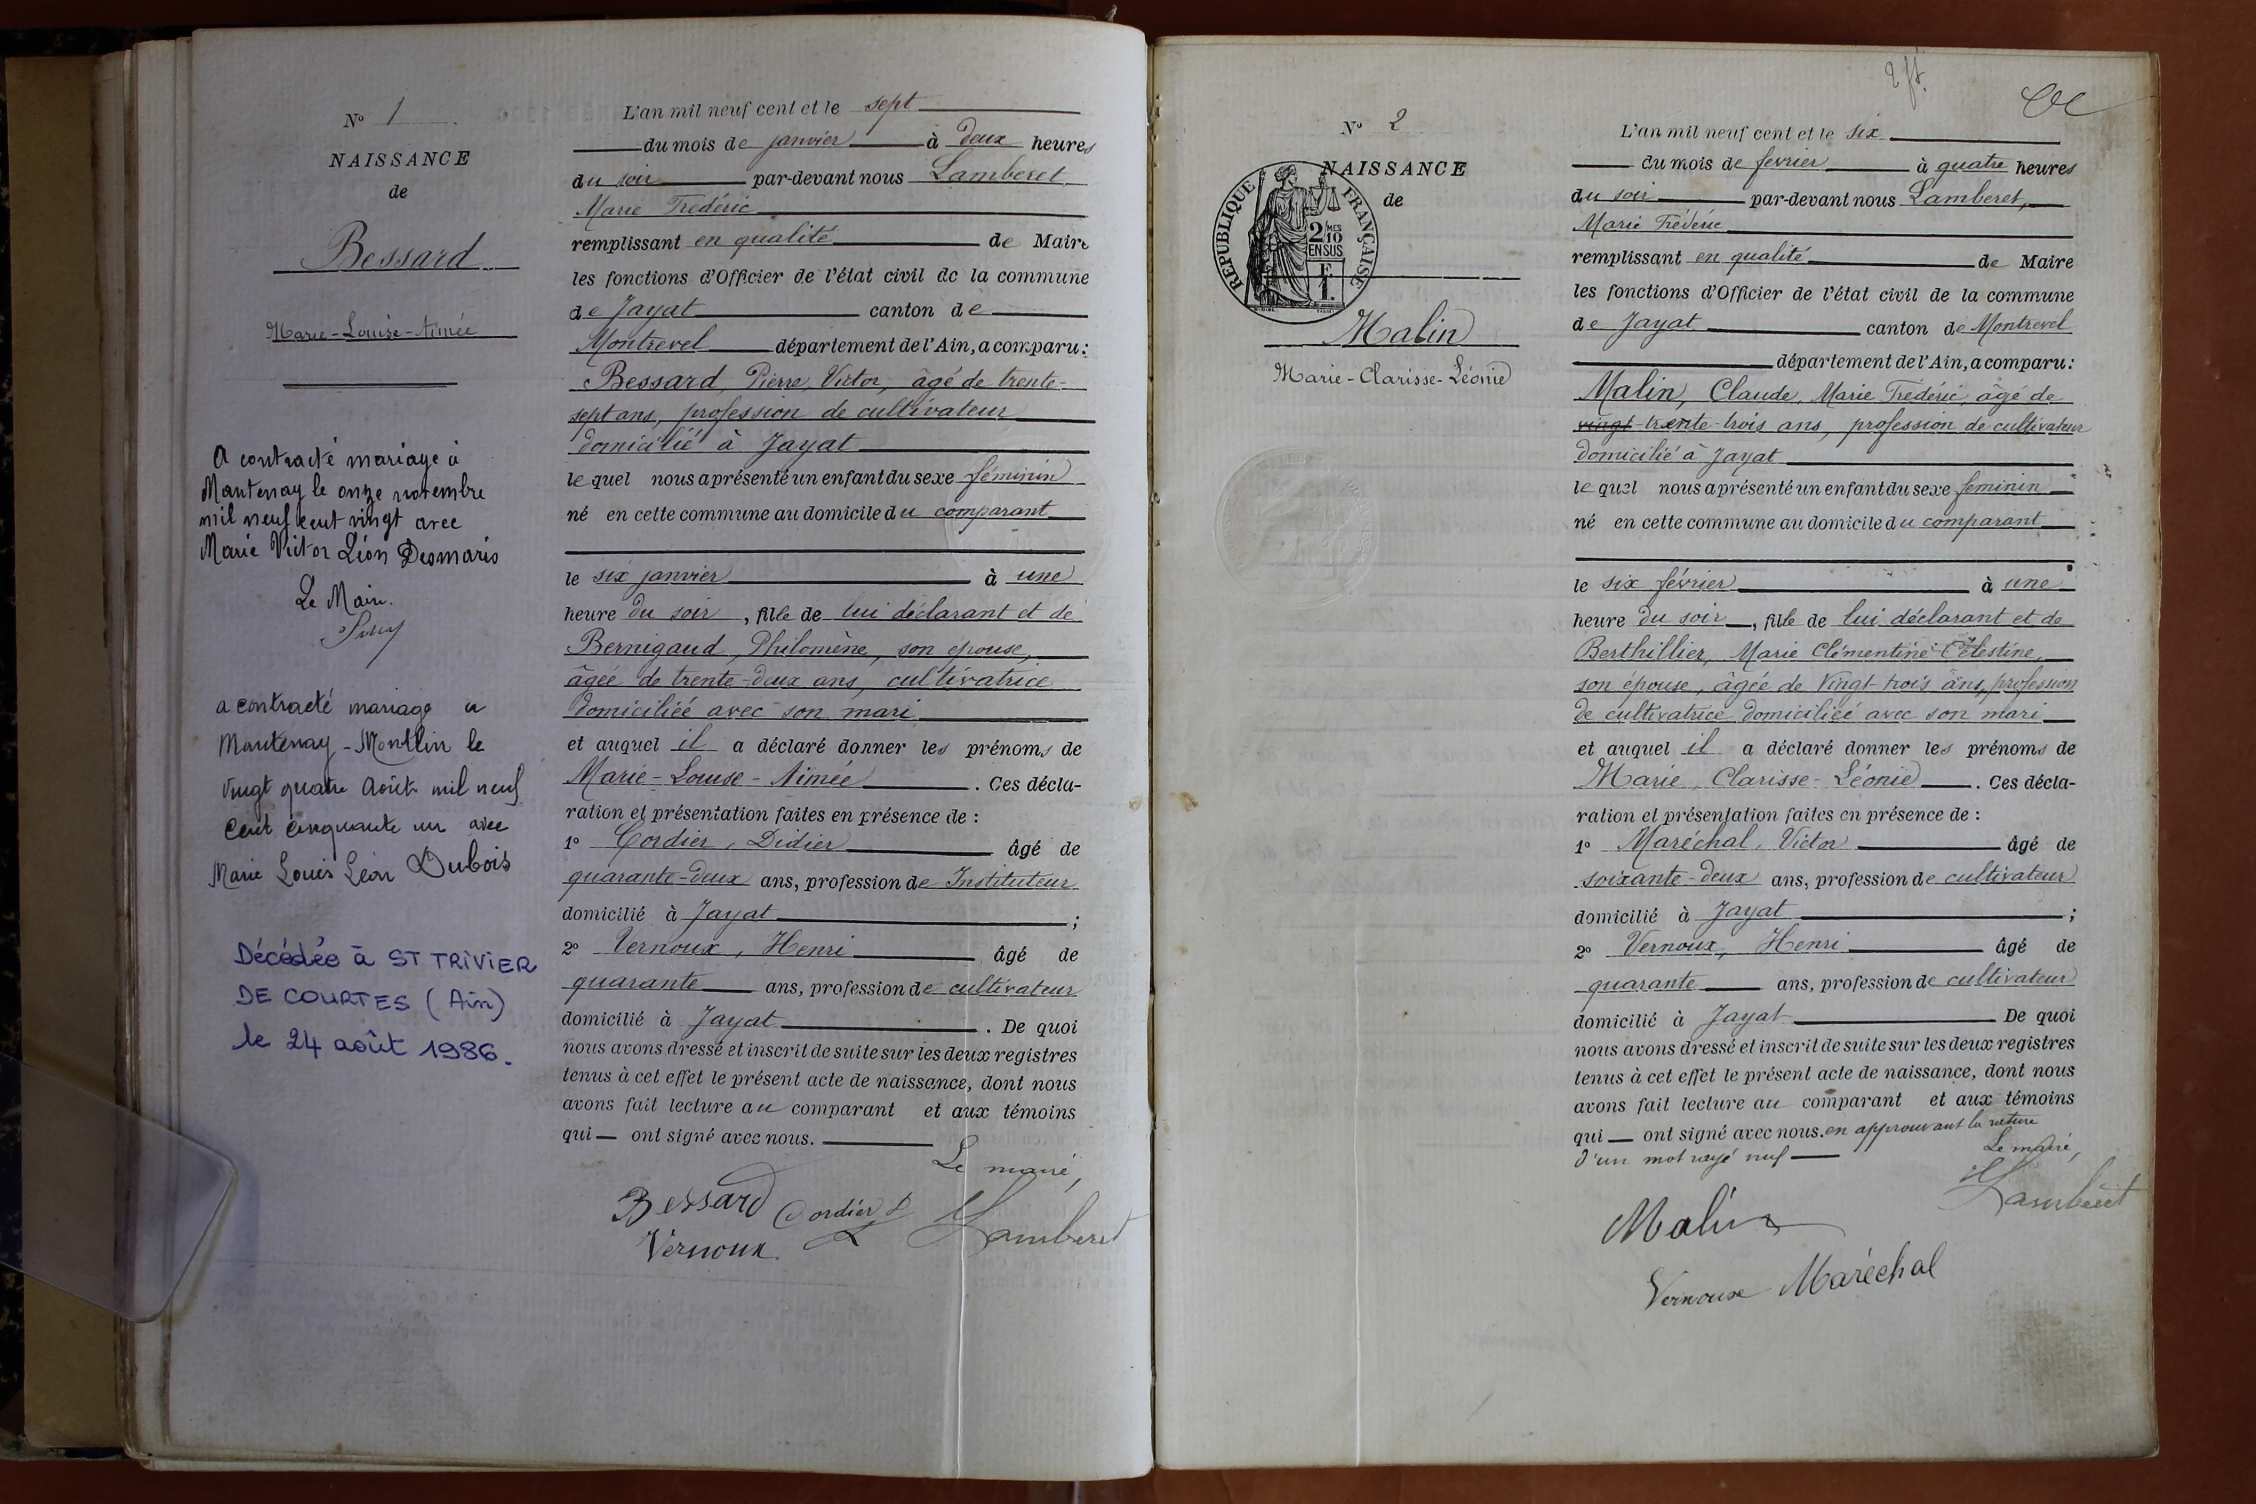 N° 1
NAISSANCE
de
Bessard
Marie-Louise-Aimée
A contracté mariage à
Mantenay le onze novembre
mil neuf cent vingt avec
Marie Victor Léon Desmaris
Le Maire.
a contracté mariage à
Mantenay-Montlin le
vingt quatre Août mil neuf
cent cinquante un avec
Marie Louis Léon Dubois
Décédée à ST TRIVIER
DE COURTES (Ain)
le 24 août 1986.
L'an mil neuf cent et le sept
du mois de janvier à deux heures
du soir par-devant nous Lamberet
Marie Frédéric
remplissant en qualité de Maire
les fonctions d'Officier de l'état civil de la commune
de Jayat canton de
Montrevel département de l'Ain, a comparu:
Bessard, Pierre, Victor, âgé de trente-
sept ans, profession de cultivateur
domicilié à Jayat
le quel nous a présenté un enfant du sexe féminin
né en cette commune au domicile du comparant
le six janvier à une
heure du soir, fille de lui déclarant et de
Bernigaud, Philomène, son épouse,
âgée de trente-deux ans, cultivatrice
domiciliée avec son mari
et auquel il a déclaré donner les prénoms de
Marie-Louise-Aimée. Ces décla-
ration et présentation faites en présence de :
1° Cordier, Didier âgé de
quarante-deux ans, profession de Instituteur
domicilié à Jayat ;
2° Vernoux, Henri âgé de
quarante ans, profession de cultivateur
domicilié à Jayat. De quoi
nous avons dressé et inscrit de suite sur les deux registres
tenus à cet effet le présent acte de naissance, dont nous
avons fait lecture au comparant et aux témoins
qui — ont signé avec nous.
Le maire,
Bessard Cordier D Lamberet
Vernoux
N° 2
NAISSANCE
de
REPUBLIQUE FRANÇAISE
2 MES
10
EN SUS
F
1.
Malin
Marie-Clarisse-Léonie
L'an mil neuf cent et le six
du mois de fevrier à quatre heures
du soir par-devant nous Lamberet,
Marie Frédéric
remplissant en qualité de Maire
les fonctions d'Officier de l'état civil de la commune
de Jayat canton de Montrevel
département de l'Ain, a comparu:
Malin, Claude, Marie Frédéric, âgé de
vingt-trente-trois ans, profession de cultivateur
domicilié à Jayat
le quel nous a présenté un enfant du sexe feminin
né en cette commune au domicile du comparant
le six février à une
heure du soir, fille de lui déclarant et de
Berthillier, Marie Clémentine Célestine,
son épouse, âgée de vingt-trois ans, profession
de cultivatrice domiciliée avec son mari
et auquel il a déclaré donner les prénoms de
Marie, Clarisse-Léonie. Ces décla-
ration et présentation faites en présence de :
1° Maréchal, Victor âgé de
soixante-deux ans, profession de cultivateur
domicilié à Jayat ;
2° Vernoux, Henri âgé de
quarante ans, profession de cultivateur
domicilié à Jayat De quoi
nous avons dressé et inscrit de suite sur les deux registres
tenus à cet effet le présent acte de naissance, dont nous
avons fait lecture au comparant et aux témoins
qui — ont signé avec nous. en approuvant la rature
d'un mot rayé nul
Le maire,
Lamberet
Malin
Vernoux Maréchal